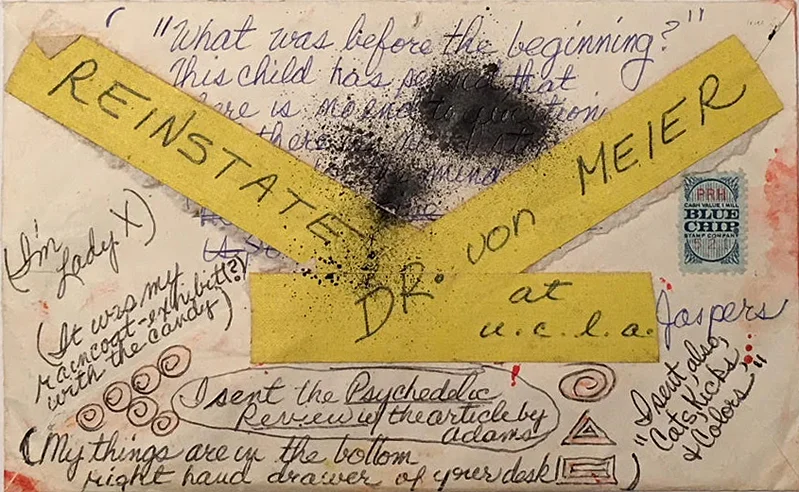 "What was before the beginning?"
This child has
that
there is no end to question
there
mind
REINSTATE
DR. von MEIER
at
u.c.l.a.
Jaspers
PRH
CASH VALUE 1 MILL
BLUE
CHIP
STAMP COMPANY
(I'm
Lady X)
(It was my
raincoat-exhibit(?)
with the candy)
I sent the Psychedelic
Review w/ the article by
Adams
"I sent, also,
Cats, Kicks
& Colors"
(My things are in the bottom
right hand drawer of your desk!)